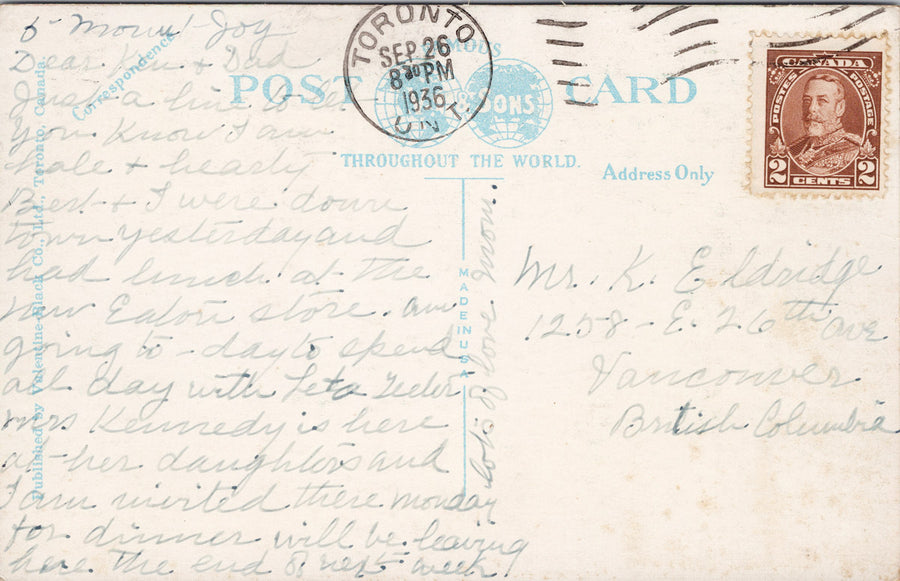 5 Mount Joy
Dear Ken & Dad
Just a line to let
you know I am
hale & hearty
Bert & I were down
town yesterday and
had lunch at the
new Eaton store. am
going to-day to spend
all day with Leta
Mrs Kennedy is here
at her daughters and
I am invited there monday
for dinner will be leaving
here the end of next week
lots of love Mom.
Correspondence
Published by Valentine-Black Co., Ltd., Toronto, Canada.
FAMOUS
POST CARD
& SONS
THROUGHOUT THE WORLD.
Address Only
MADE IN USA
TORONTO
SEP 26
8 30 PM
1936
ONT.
CANADA
POSTES POSTAGE
2 CENTS 2
Mr. K. Eldridge
1258-E. 26th ave
Vancouver
British Columbia